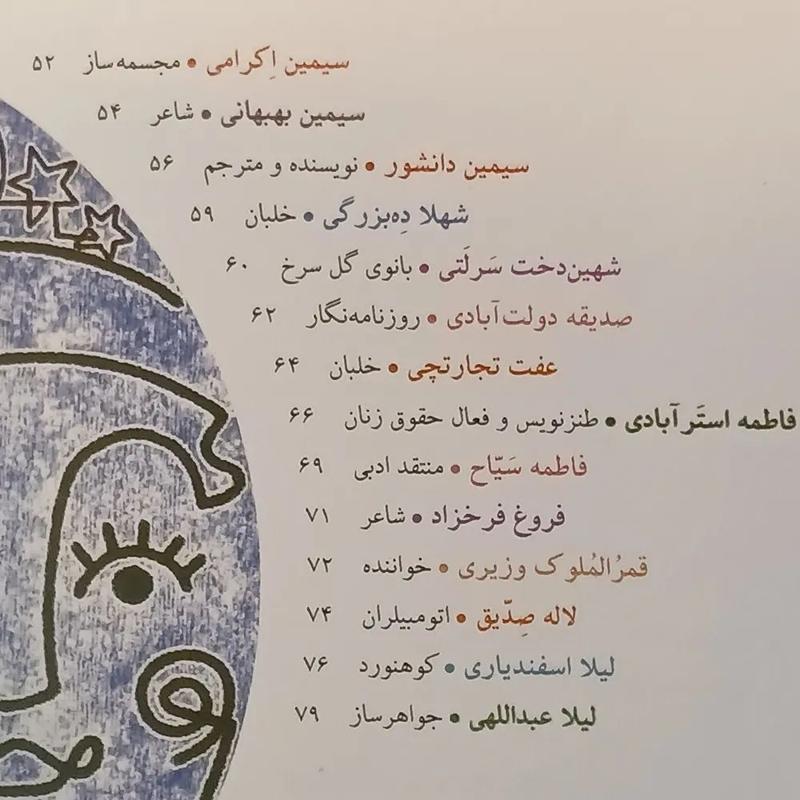 سیمین اِکرامی • مجسمه‌ساز ۵۲
سیمین بهبهانی • شاعر ۵۴
سیمین دانشور • نویسنده و مترجم ۵۶
شهلا دِه‌بزرگی • خلبان ۵۹
شهین‌دخت سَرلَتی • بانوی گل سرخ ۶۰
صدیقه دولت‌آبادی • روزنامه‌نگار ۶۲
عفت تجارتچی • خلبان ۶۴
فاطمه استَرآبادی • طنزنویس و فعال حقوق زنان ۶۶
فاطمه سَیّاح • منتقد ادبی ۶۹
فروغ فرخزاد • شاعر ۷۱
قمرُالمُلوک وزیری • خواننده ۷۲
لاله صِدّیق • اتومبیلران ۷۴
لیلا اسفندیاری • کوهنورد ۷۶
لیلا عبداللهی • جواهرساز ۷۹